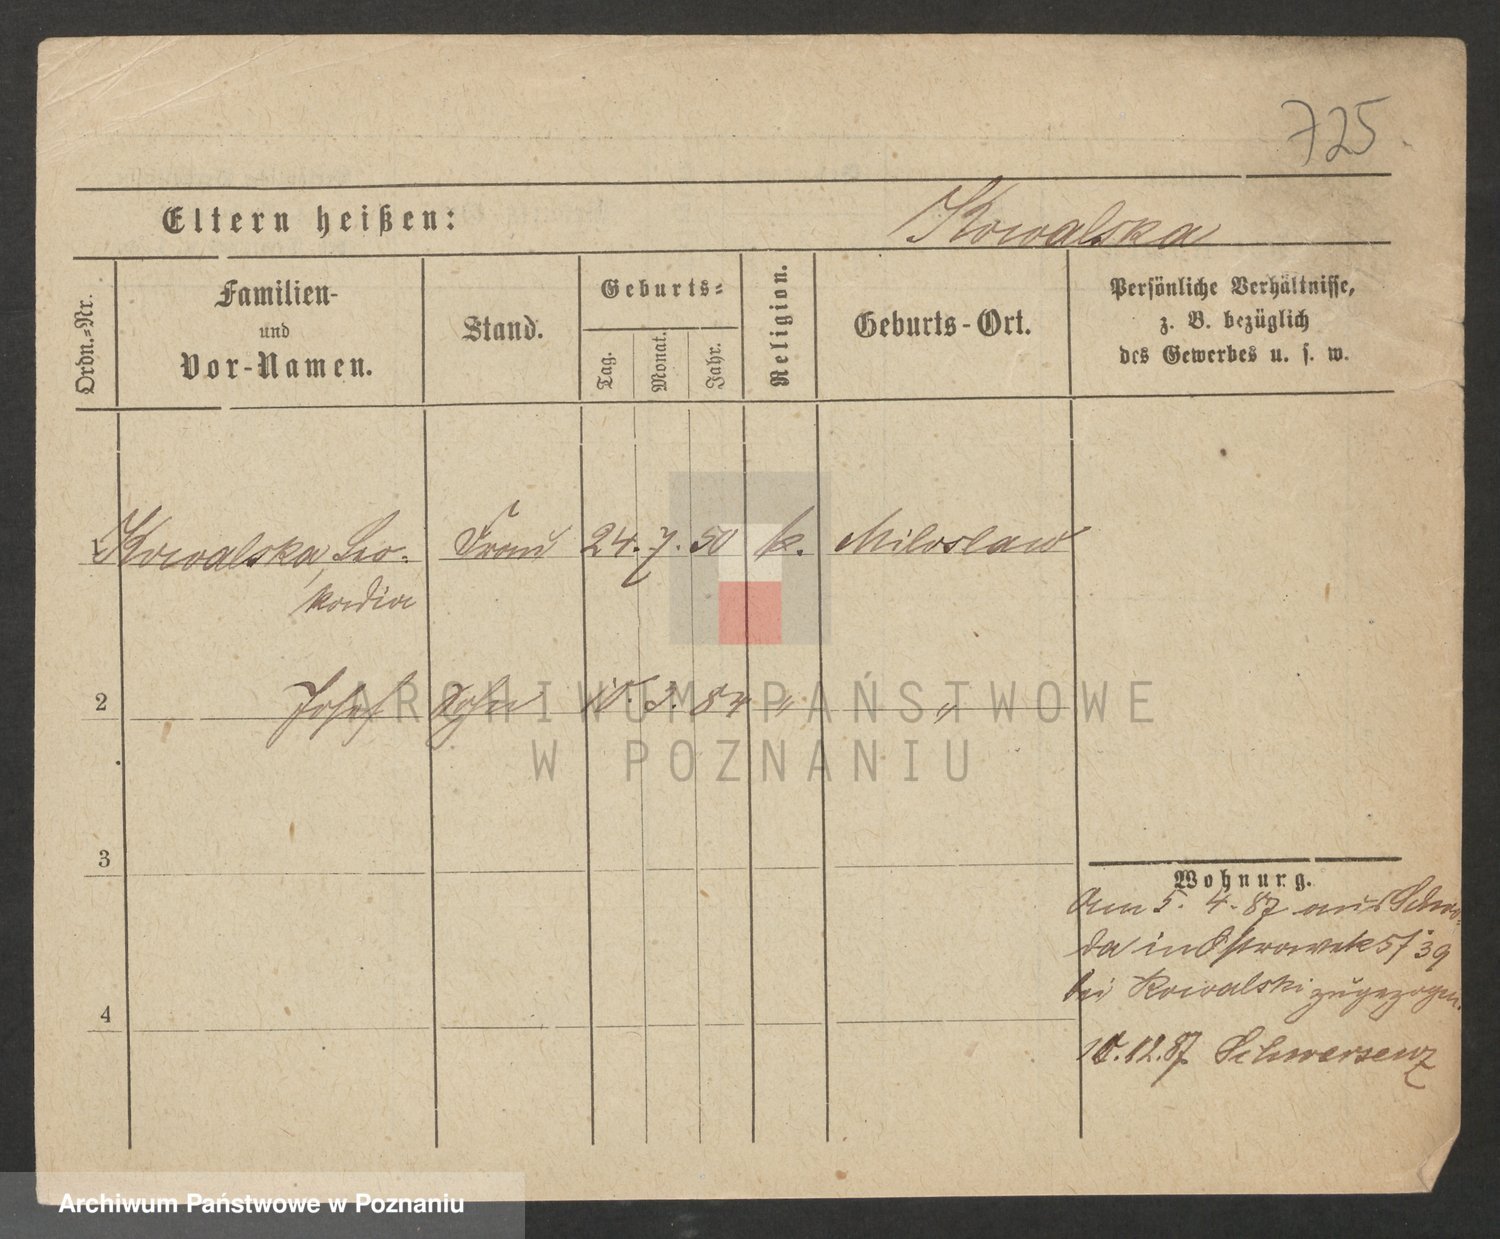 725.
Eltern heißen: Kowalska
Ordn.-Nr.
Familien-
und
Vor-Namen.
Stand.
Geburts-
Tag.
Monat.
Jahr.
Religion.
Geburts-Ort.
Persönliche Verhältnisse,
z. B. bezüglich
des Gewerbes u. s. w.
1 Kowalska, Leo- Frau 24. 7. 50 k. Miloslaw
kadia
2 Josef Sohn 3. 84 " "
3
4
Wohnung.
Am 5. 4. 87 aus Schro-
da in Ostrowek 5/39
bei Kowalski zugezogen.
12. 87. Schwersenz
ARCHIWUM PAŃSTWOWE
W POZNANIU
Archiwum Państwowe w Poznaniu